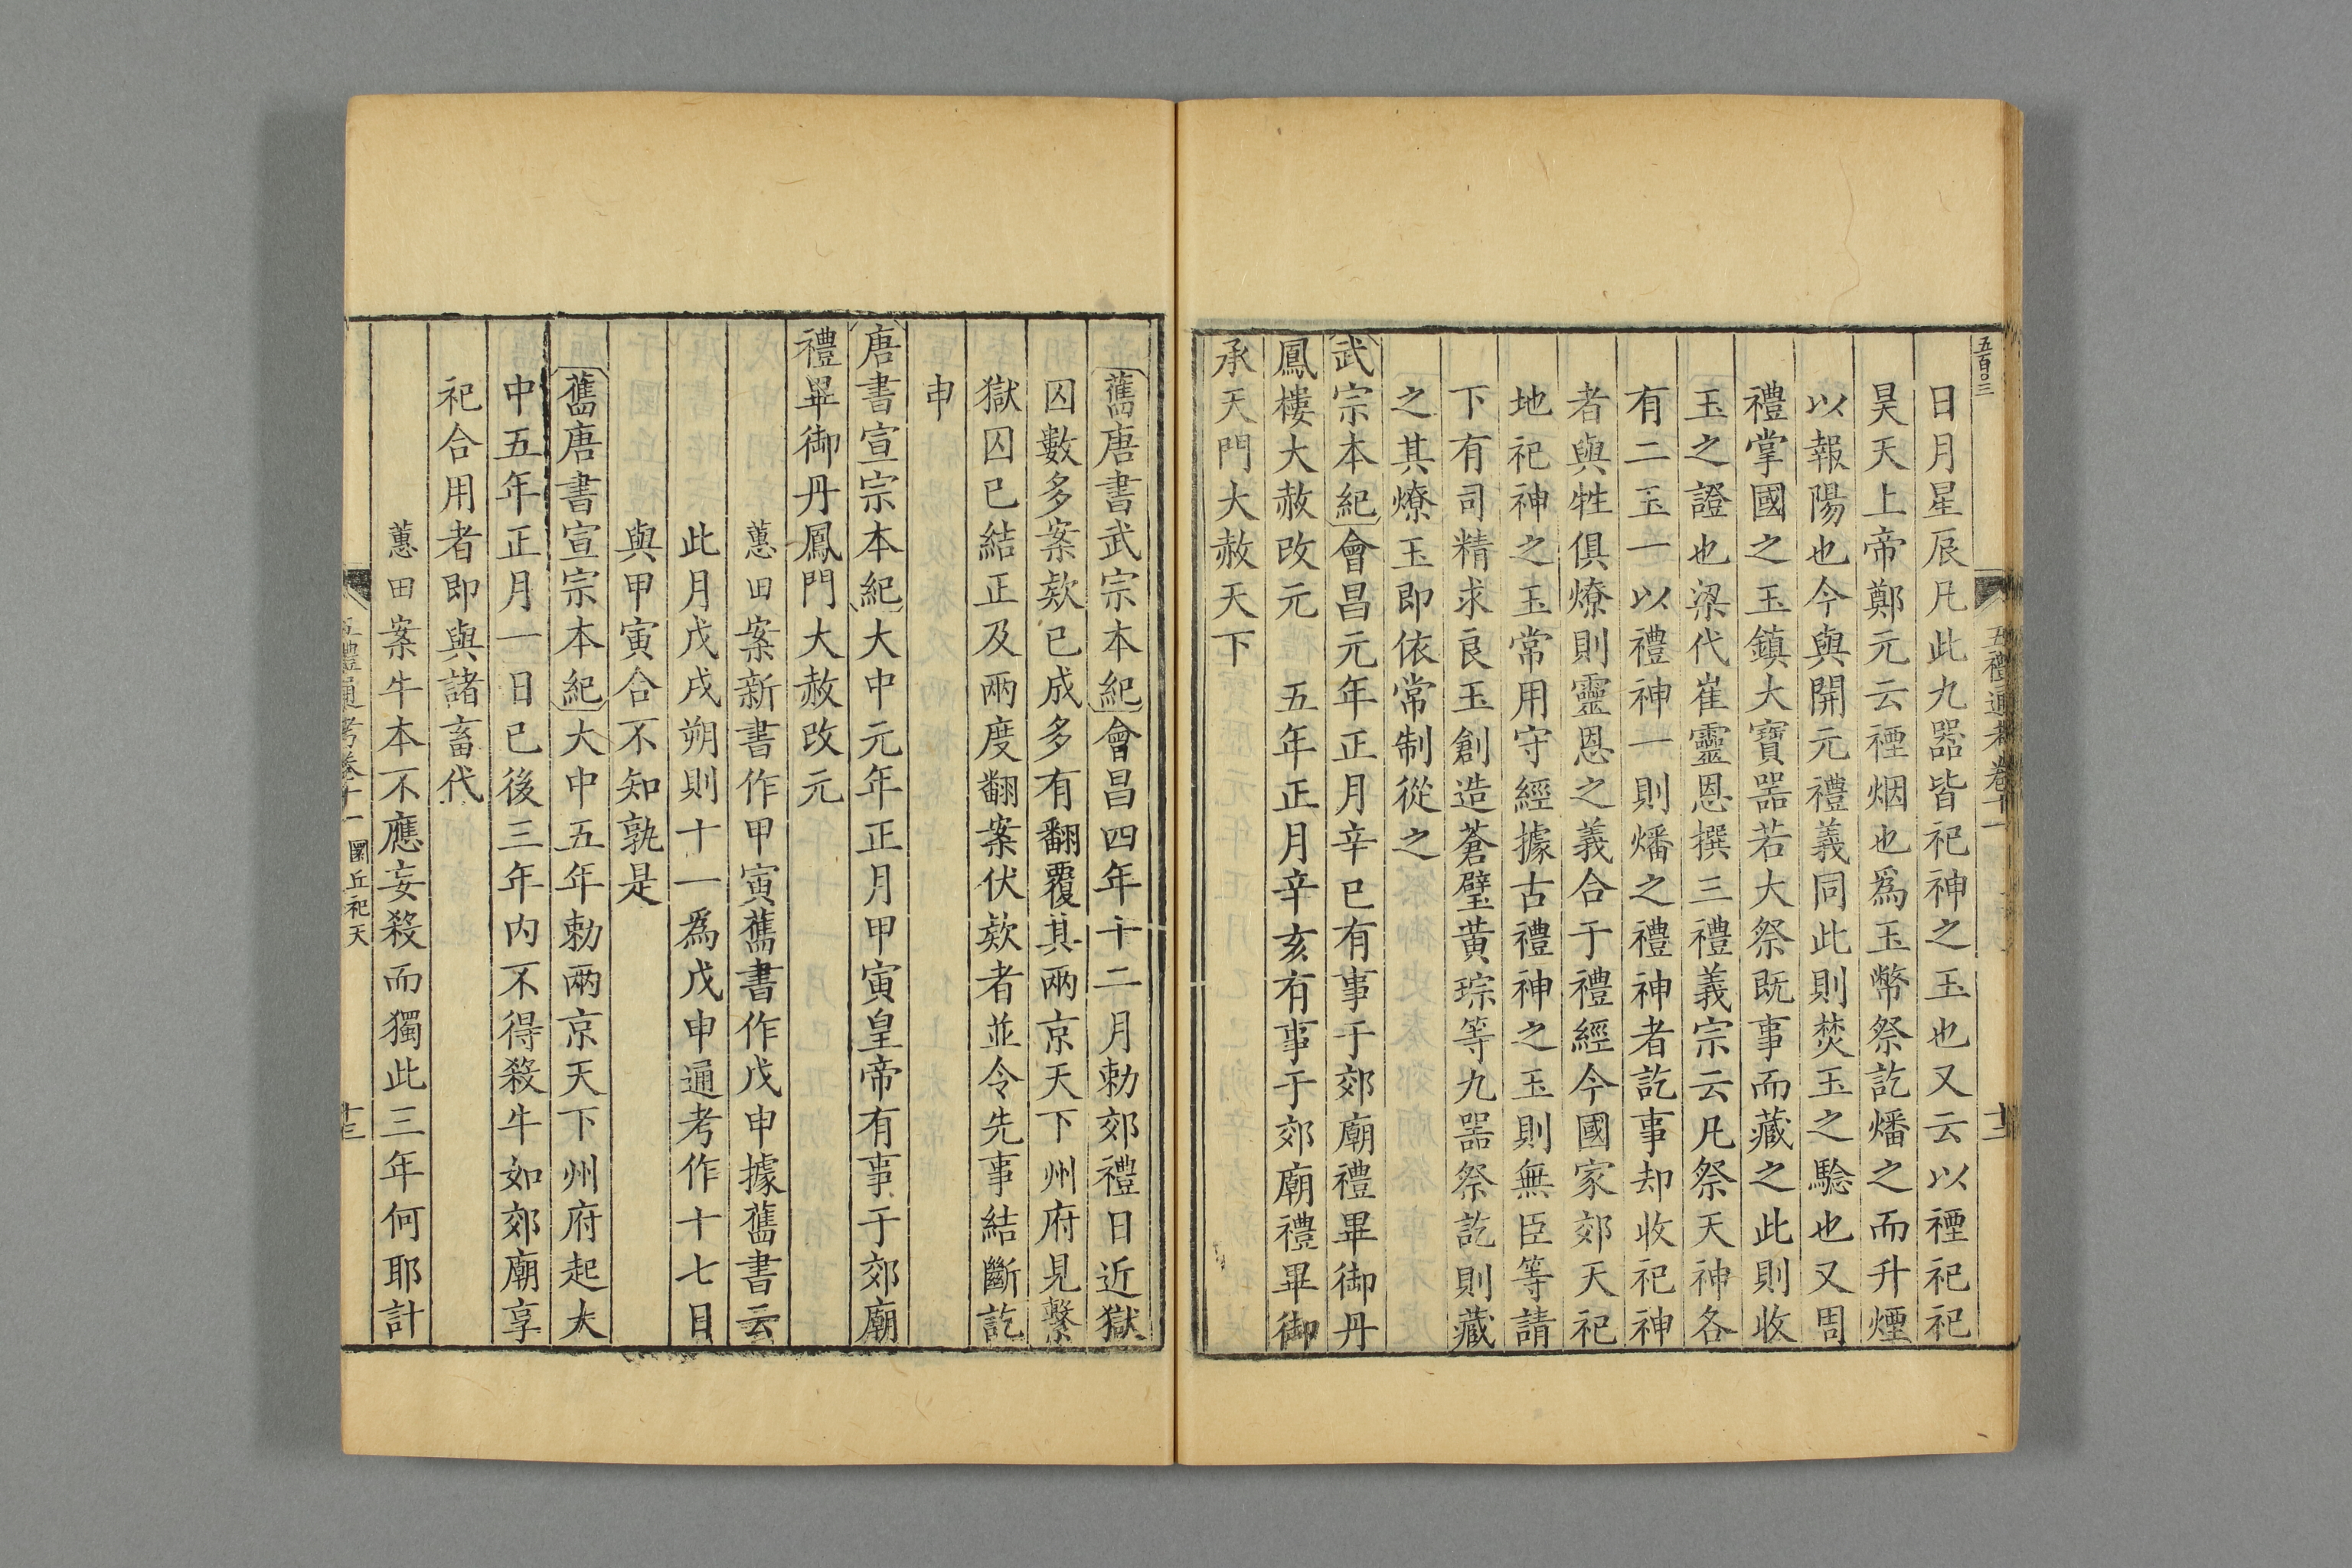 五百〇三
五禮通考卷十一
十二
日月星辰凡此九器皆祀神之玉也又云以禋祀祀
昊天上帝鄭元云禋烟也爲玉幣祭訖燔之而升煙
以報陽也今與開元禮義同此則焚玉之騐也又周
禮掌國之玉鎮大寶器若大祭既事而藏之此則收
玉之證也梁代崔靈恩撰三禮義宗云凡祭天神各
有二玉一以禮神一則燔之禮神者訖事却收祀神
者與牲俱燎則靈恩之義合于禮經今國家郊天祀
地祀神之玉常用守經據古禮神之玉則無臣等請
下有司精求良玉創造蒼璧黃琮等九器祭訖則藏
之其燎玉即依常制從之
武宗本紀會昌元年正月辛巳有事于郊廟禮畢御丹
鳳樓大赦改元　五年正月辛亥有事于郊廟禮畢御
承天門大赦天下
舊唐書武宗本紀會昌四年十二月勅郊禮日近獄
囚數多案欵已成多有翻覆其兩京天下州府見繫
獄囚已結正及兩度翻案伏欵者並令先事結斷訖
申
唐書宣宗本紀大中元年正月甲寅皇帝有事于郊廟
禮畢御丹鳳門大赦改元
蕙田案新書作甲寅舊書作戊申據舊書云
此月戊戌朔則十一爲戊申通考作十七日
與甲寅合不知孰是
舊唐書宣宗本紀大中五年勅兩京天下州府起大
中五年正月一日已後三年内不得殺牛如郊廟享
祀合用者即與諸畜代
蕙田案牛本不應妄殺而獨此三年何耶計
五禮通考卷十一　圜丘祀天
十三